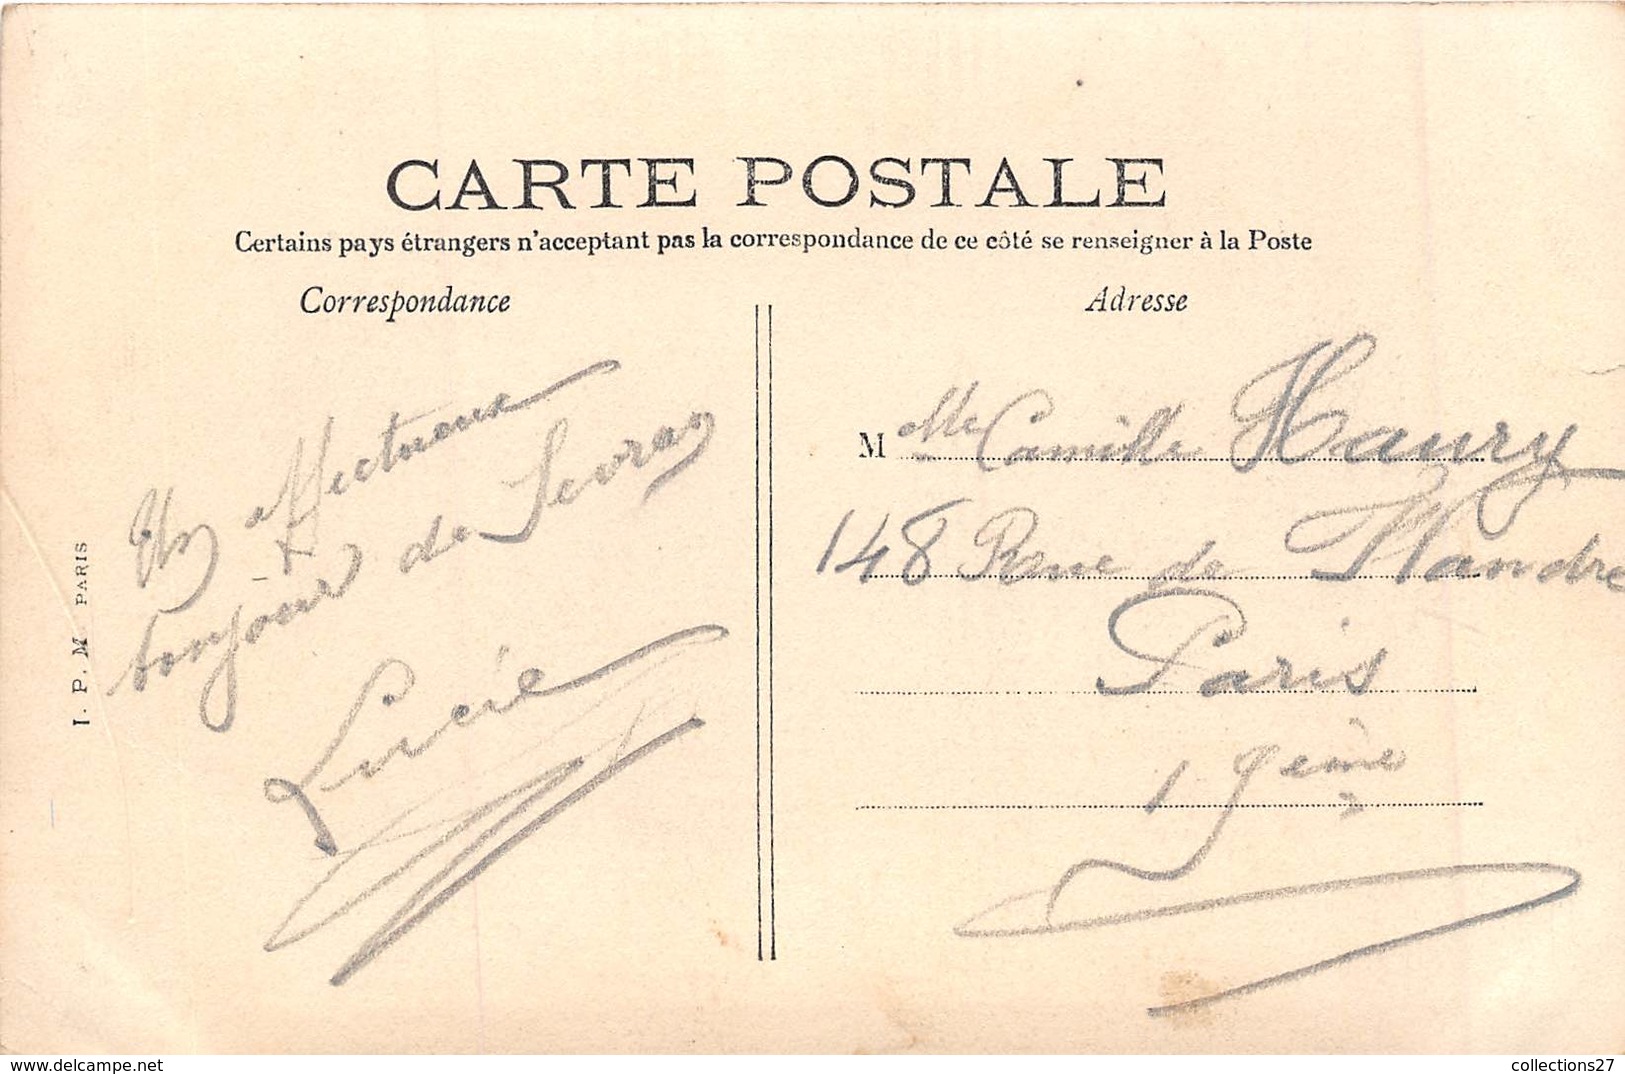 CARTE POSTALE
Certains pays étrangers n'acceptent pas la correspondance de ce côté se renseigner à la Poste
Correspondance
Adresse
Un affectueux
bonjour de Sevran
Lucie
Melle Camille Haury
148 Rue de Flandre
Paris
19ème
I. P. M. PARIS
https://www.delcampe.net
collections27